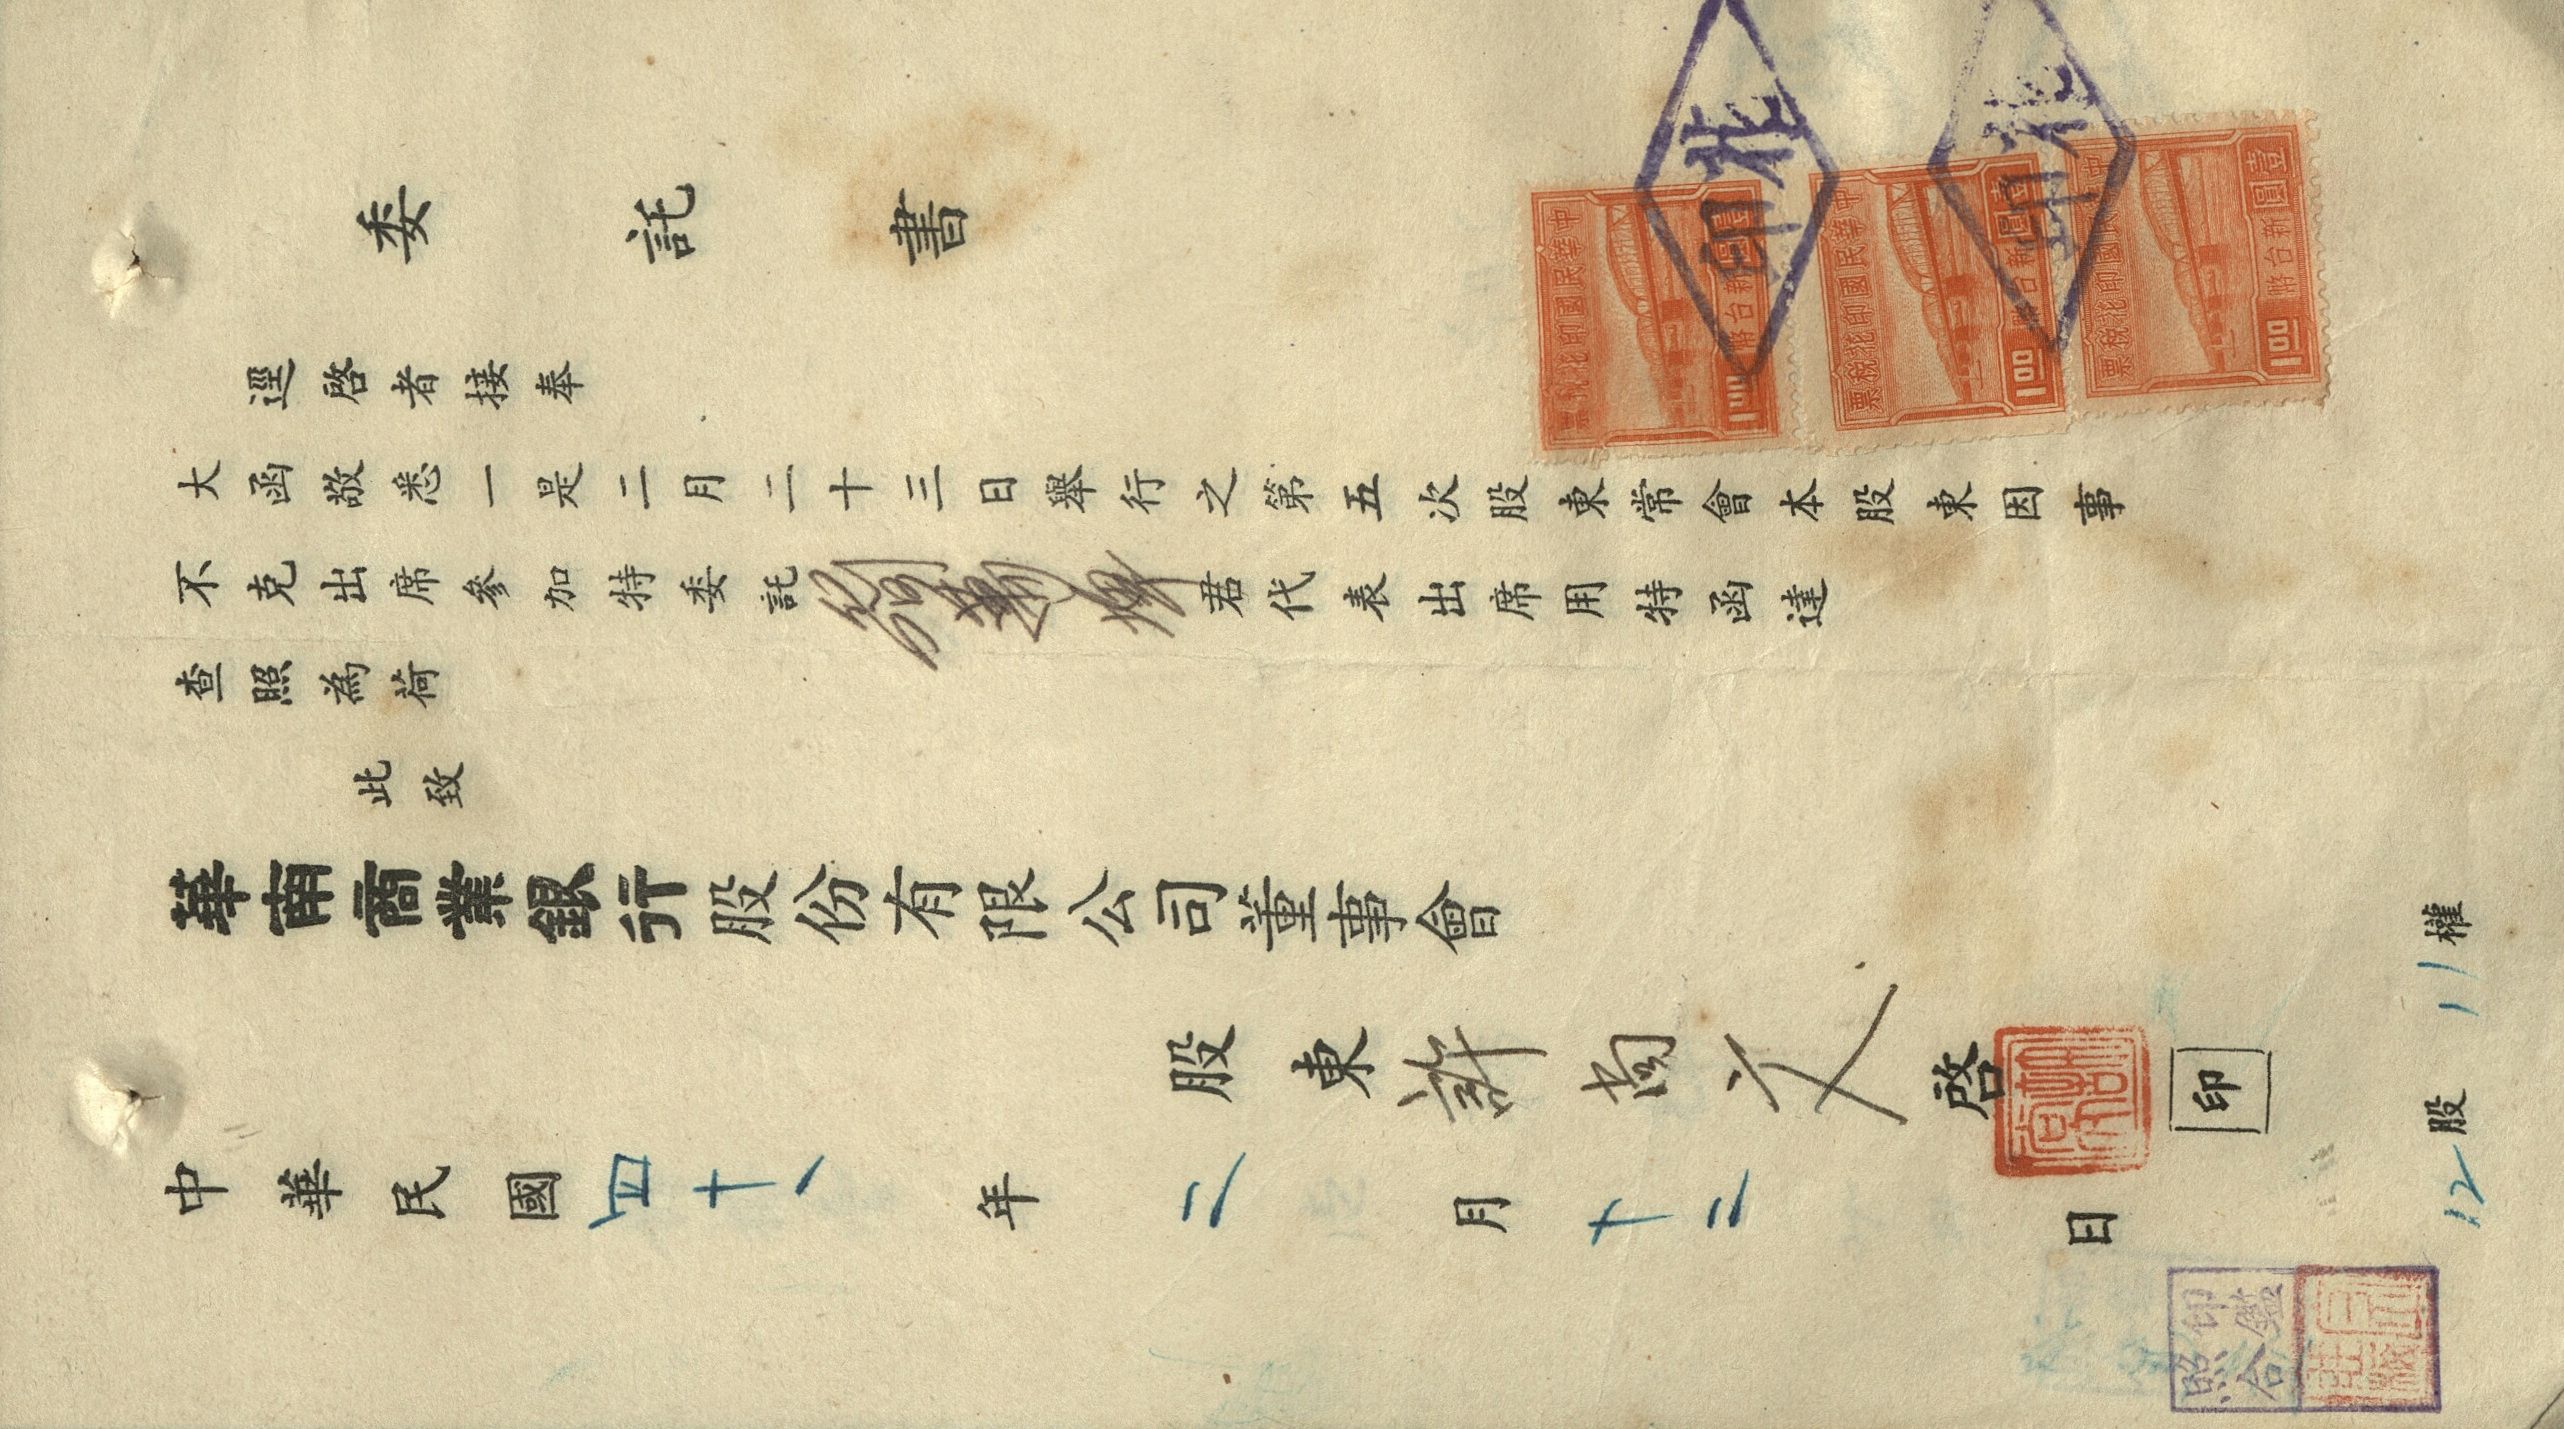 委託書
中華民國印花稅票
壹圓
新台幣
1.00
中華民國印花稅票
壹圓
新台幣
1.00
中華民國印花稅票
壹圓
新台幣
1.00
逕啓者接奉
大函敬悉一是二月二十三日舉行之第五次股東常會本股東因事
不克出席參加特委託 君代表出席用特函達
查照為荷
此致
華南商業銀行股份有限公司董事會
股東許尚文啓 印
中華民國四十一年二月十二日
12股 11權
印鑑照合